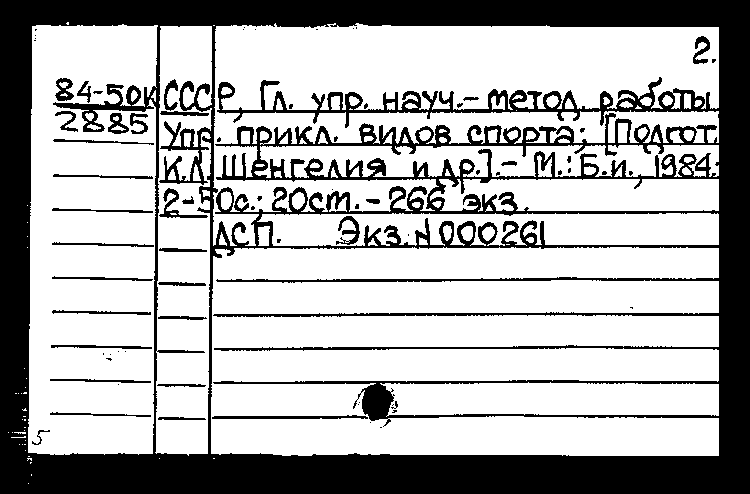 2.
84-50К СССР, Гл. упр. науч.- метод. работы
2885 Упр. прикл. видов спорта; [Подгот.
К.Л. Шенгелия и др.].- М.: Б.и., 1984.-
2-50с.; 20ст. - 266 экз.
ДСП. Экз. N 000261
5